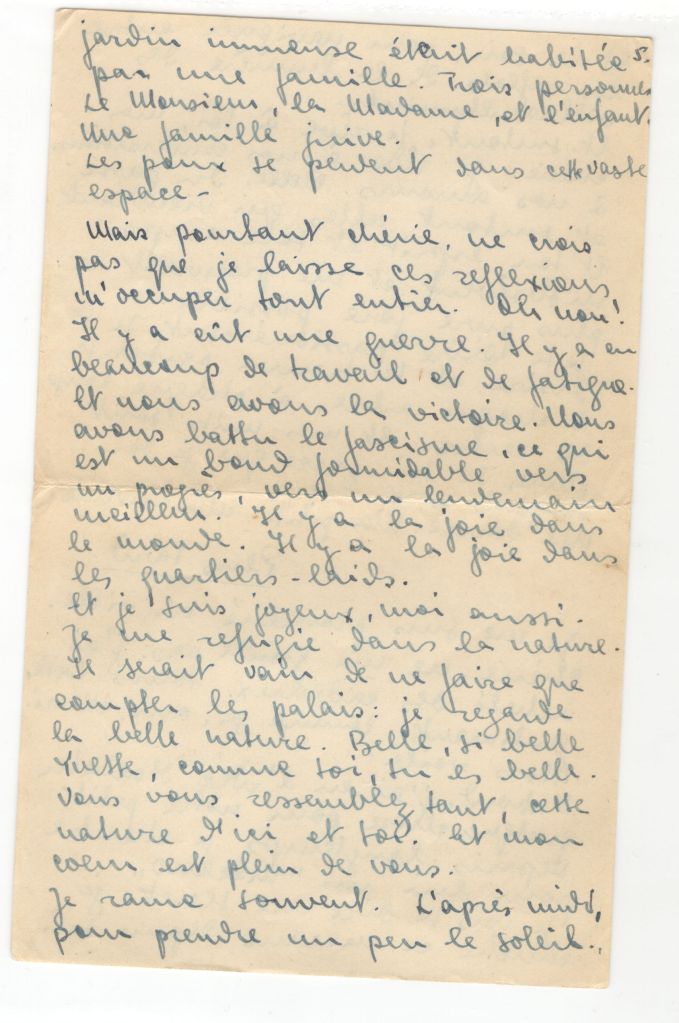 jardin immense était habitée 5.
par une famille. Trois personnes
Le Monsieur, la Madame, et l'enfant.
Une famille juive.
Les pour se perdent dans cette vaste
espace -
Mais pourtant chérie, ne crois
pas que je laisse ces reflexions
m'occuper tout entier. Oh non!
Il y a eût une guerre. Il y a eu
beaucoup de travail et de fatigue.
Et nous avons la victoire. Nous
avons battu le fascisme, ce qui
est un bond formidable vers
un progrès, vers un lendemain
meilleur. Il y a la joie dans
le monde. Il y a la joie dans
les quartiers-laids.
Et je suis joyeux, moi aussi.
Je me refugie dans la nature.
Il serait vain de ne faire que
compter les palais: je regarde
la belle nature. Belle, si belle
Yvette, comme toi, tu es belle.
Vous vous ressemblez tant, cette
nature d'ici et toi. Et mon
coeur est plein de vous.
Je rame souvent. L'après midi,
pour prendre un peu le soleil..